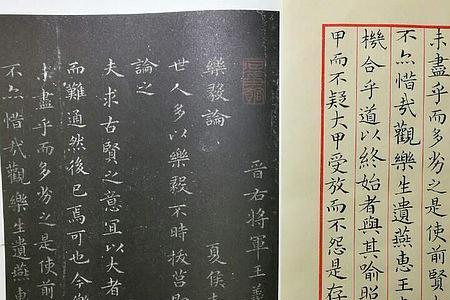 未盡乎而多劣之是使前賢
不亦惜哉觀樂生遺燕惠王
機合乎道以終始者與其喻昭
甲而不疑大甲受放而不怨是存
晋右將軍王羲
樂毅論 夏侯
世人多以樂毅不時拔莒即
論之
夫求古賢之意宜以大者
而難通然後已焉可也今樂
未盡乎而多劣之是使前
不亦惜哉觀樂生遺燕惠